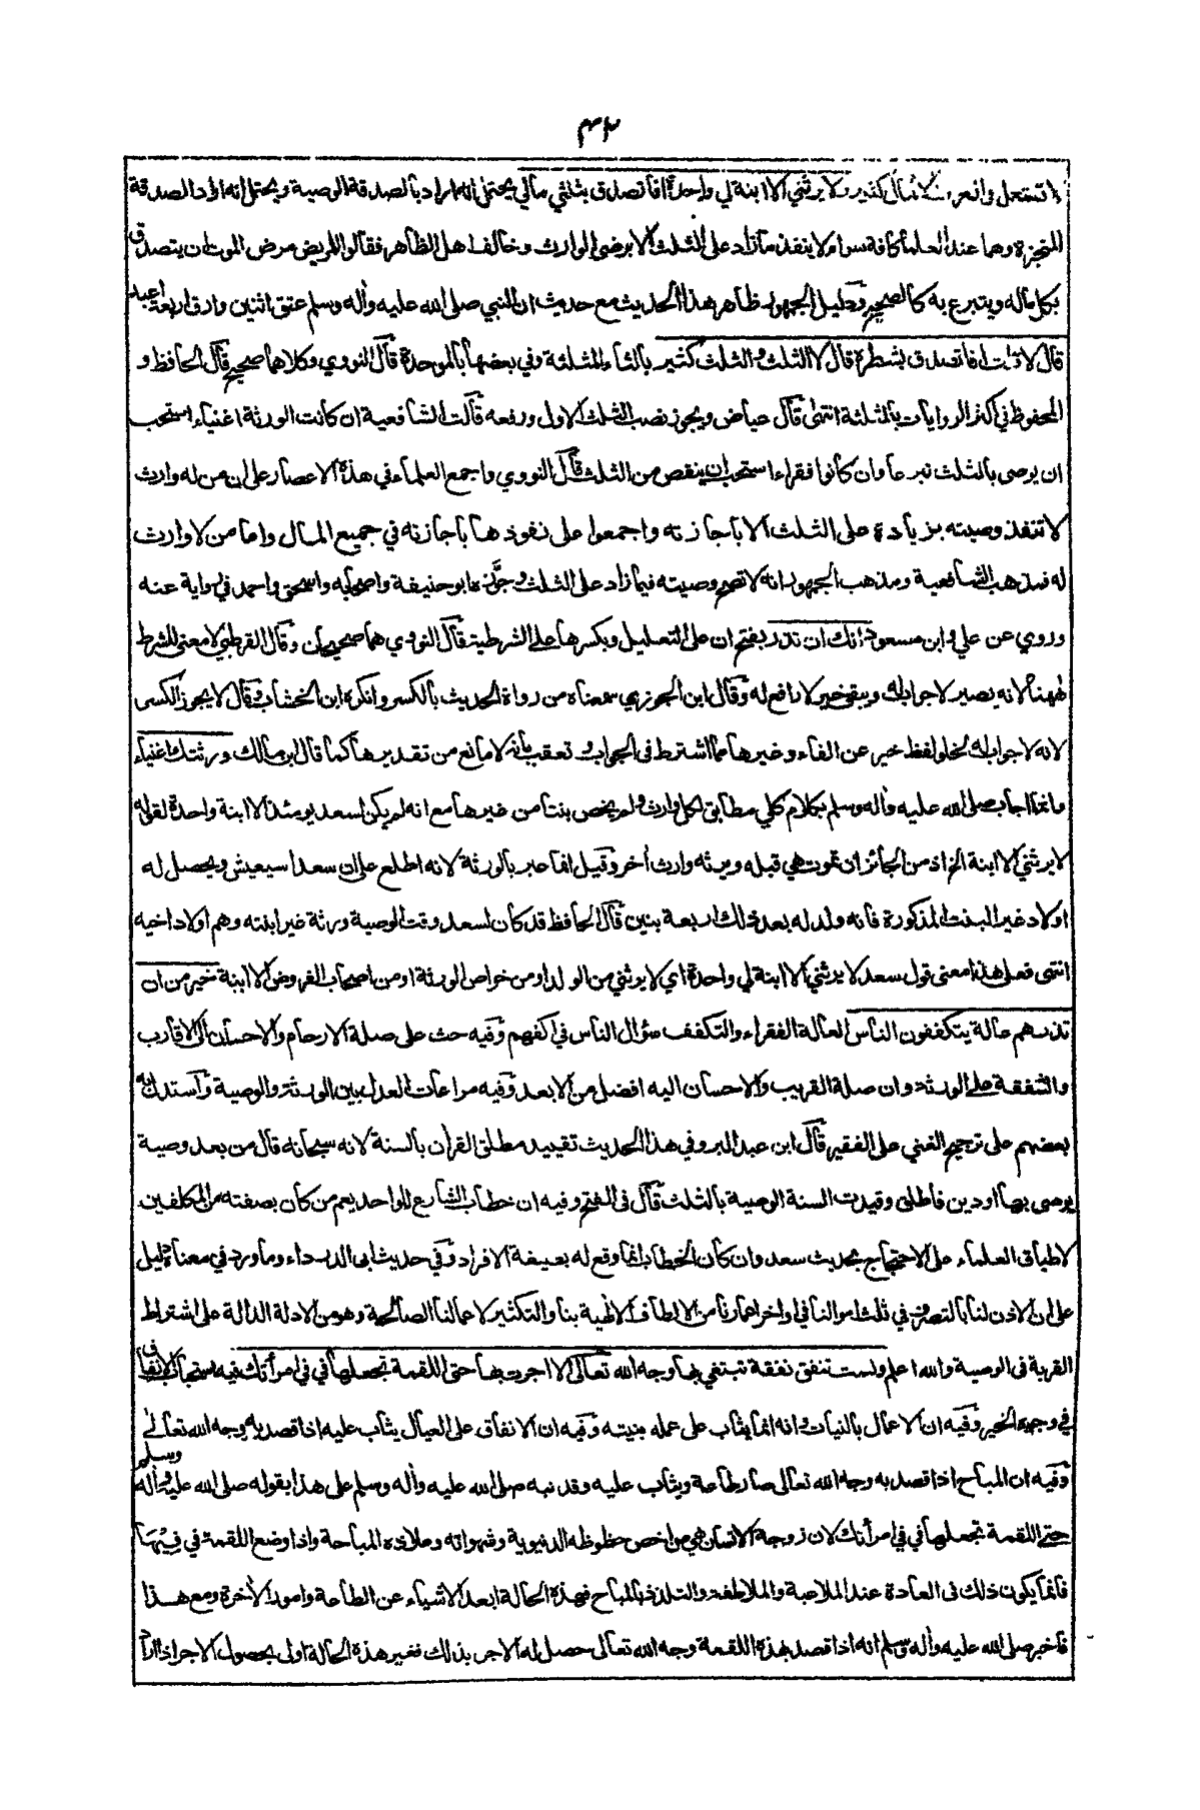 ٣٢
لا تستعمل في العرف الا مال كثير ولا يرثني الا ابنة لي واحدة افاتصدق بثلثي مالي يحتمل انه اراد بالصدقة الوصية ويحتمل انه اراد الصدقة
المنجزة وهما عند العلماء كافة سواء لا ينفذ ما زاد على الثلث الا برضى الوارث وخالف اهل الظاهر فقالوا للمريض مرض الموت ان يتصدق
بكل ماله ويتبرع به كالصحيح ودليل الجمهور ظاهر هذا الحديث مع حديث ان النبي صلى الله عليه وآله وسلم عتق اثنين وارق اربعة اعبد
قال لا قلت افاتصدق بشطره قال لا الثلث والثلث كثير بالثاء المثلثة وفي بعضها بالموحدة قال النووي وكلاهما صحيح قال الحافظ و
المحفوظ في اكثر الروايات بالمثلثة انتهى قال عياض ويجوز نصب الثلث الاول ورفعه قالت الشافعية ان كانت الورثة اغنياء استحب
ان يوصى بالثلث تبرعا وان كانوا فقراء استحب ان ينقص من الثلث قال النووي واجمع العلماء في هذه الاعصار على ان من له وارث
لا تنفذ وصيته بزيادة على الثلث الا باجازته واجمعوا على نفوذها باجازته في جميع المال واما من لا وارث
له فمذهب الشافعية ومذهب الجمهور انه لا تصح وصيته فيما زاد على الثلث وجوّزه ابو حنيفة واصحابه واسحق واحمد في رواية عنه
وروي عن علي وابن مسعود انك ان تذر بفتح ان على التعليل وبكسرها على الشرطية قال النووي هما صحيحان وقال القرطبي لا معنى للشرط
ههنا لانه يصير لا جواب له ويبقى خير لا رافع له وقال ابن الجوزي سمعناه من رواة الحديث بالكسر وانكره ابن الخشاب وقال لا يجوز الكسر
لانه لا جواب له لخلو لفظ خير عن الفاء وغيرها مما اشترط في الجواب وتعقب بانه لا مانع من تقديرها كما قال ابن مالك ورثتك اغنياء
وانما اجاب صلى الله عليه وآله وسلم بكلام كلي مطابق لكل وارث ولم يخص بنتا من غيرها مع انه لم يكن لسعد يومئذ الا ابنة واحدة لقوله
لا يرثني الا ابنة الخ اذ من الجائز ان تموت هي قبله ويرثه وارث آخر وقيل انما عبر بالورثة لانه اطلع على ان سعدا سيعيش ويحصل له
اولاد غير البنت المذكورة فانه ولد له بعد ذلك اربعة بنين قال الحافظ قد كان لسعد وقت الوصية ورثة غير ابنته وهم اولاد اخيه
انتهى فعلى هذا معنى قول سعد لا يرثني الا ابنة لي واحدة اي لا يرثني من الولد او من خواص الورثة او من اصحاب الفروض الا ابنة خير من ان
تذرهم عالة يتكففون الناس العالة الفقراء والتكفف سؤال الناس في اكفهم وفيه حث على صلة الارحام والاحسان الى الاقارب
والشفقة على الورثة وان صلة القريب والاحسان اليه افضل من الابعد وفيه مراعات العدل بين الورثة والوصية واستدل به
بعضهم على ترجيح الغني على الفقير قال ابن عبد البر وفي هذا الحديث تقييد مطلق القرآن بالسنة لانه سبحانه قال من بعد وصية
يوصى بها او دين فاطلق وقيدت السنة الوصية بالثلث قال في الفتح وفيه ان خطاب الشارع للواحد يعم من كان بصفته من المكلفين
لاطباق العلماء على الاحتجاج بحديث سعد وان كان الخطاب انما وقع له بصيغة الافراد وفي حديث ابي الدرداء وما ورد في معناه دليل
على ان الاذن لنا بالتصرف في ثلث اموالنا في اواخر اعمارنا من الالطاف الالهية بنا والتكثير لاعمالنا الصالحة وهو من الادلة الدالة على اشتراط
القربة في الوصية والله اعلم ولست تنفق نفقة تبتغي بها وجه الله تعالى الا اجرت بها حتى اللقمة تجعلها في في امرأتك فيه استحباب الانفاق
في وجوه الخير وفيه ان الاعمال بالنيات وانه انما يثاب على عمله بنيته وفيه ان الانفاق على العيال يثاب عليه اذا قصد به وجه الله تعالى
وفيه ان المباح اذا قصد به وجه الله تعالى صار طاعة ويثاب عليه وقد نبه صلى الله عليه وآله وسلم على هذا بقوله صلى الله عليه وآله وسلم
حتى اللقمة تجعلها في في امرأتك لان زوجة الانسان هي من اخص حظوظه الدنيوية وشهواته وملاذه المباحة واذا وضع اللقمة في فِيْهَا
فانما يكون ذلك في العادة عند الملاعبة والملاطفة والتلذذ بالمباح فهذه الحالة ابعد الاشياء عن الطاعة وامور الآخرة ومع هذا
فاخبر صلى الله عليه وآله وسلم انه اذا قصد بهذه اللقمة وجه الله تعالى حصل له الاجر بذلك فغير هذه الحالة اولى بحصول الاجر اذا اراد